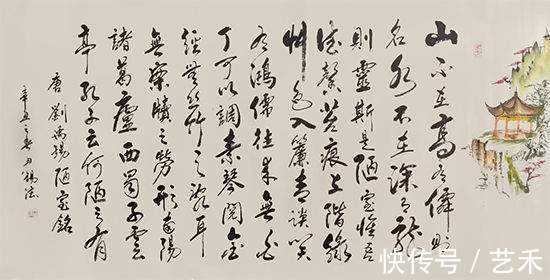 山不在高有僊則
名水不在深有龍
則靈斯是陋室惟吾
德馨苔痕上階綠
艸色入簾青談笑
有鴻儒往來無白
丁可以調素琴閱金
經無絲竹之亂耳
無案牘之勞形南陽
諸葛廬西蜀子雲
亭孔子云何陋之有
唐劉禹錫陋室銘
辛丑之春月
快传号/艺禾